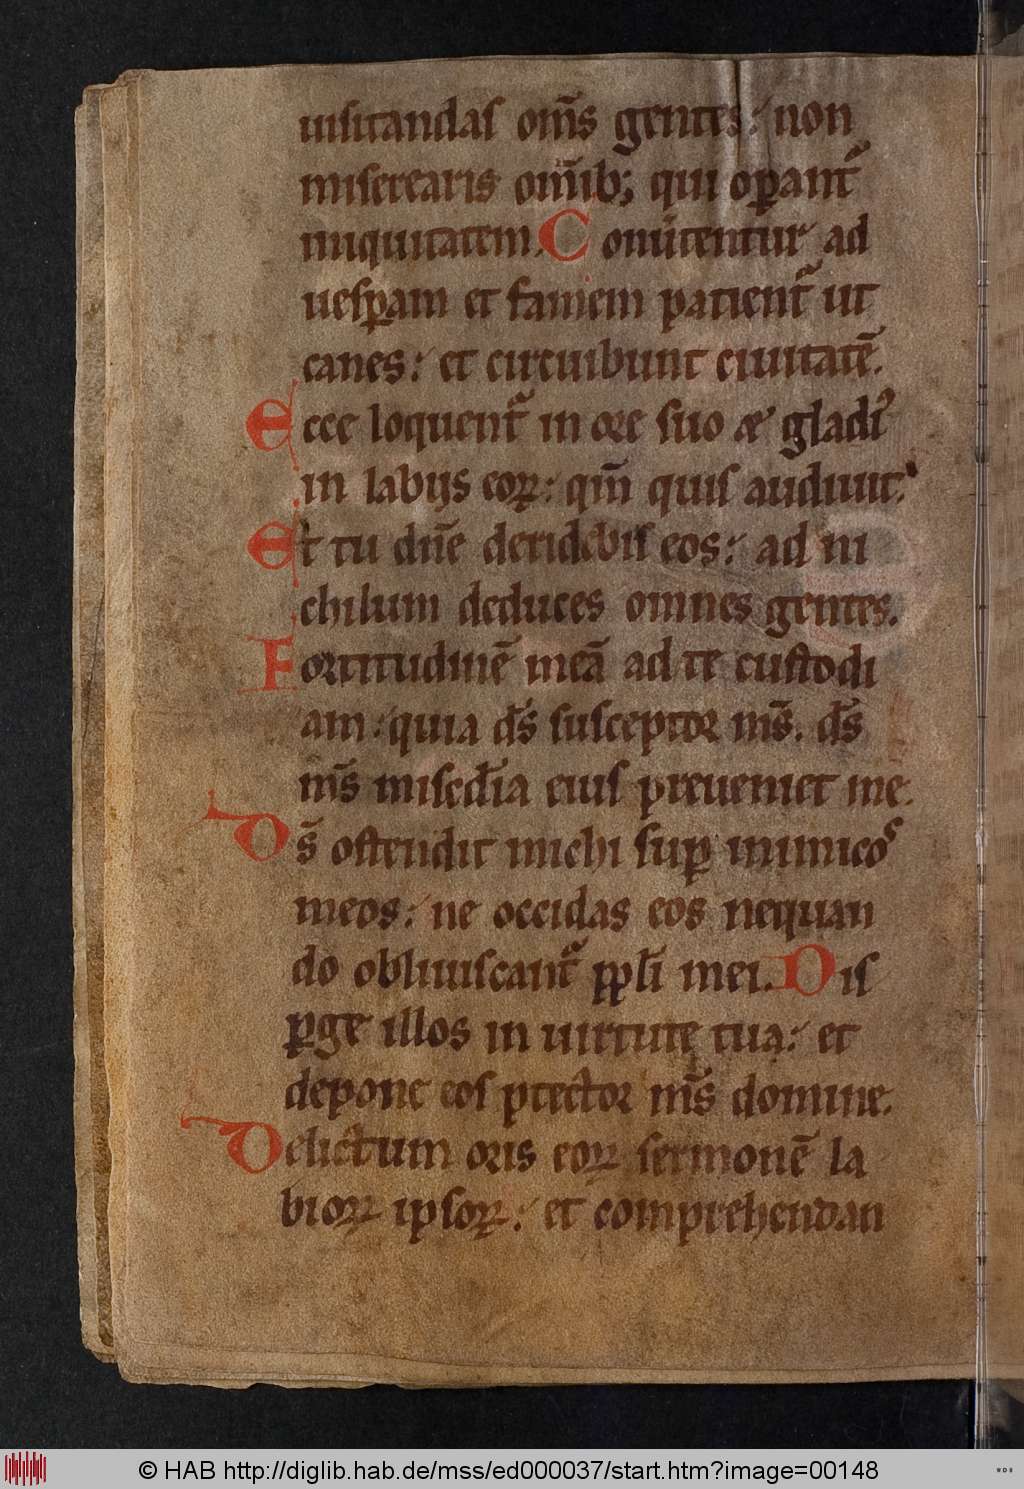 uisitandas om̄s gentes: non
miserearis om̄ib; qui oꝑant᷑
iniquitatem. Conu̾tentur ad
uesꝑam et famem patient᷑ ut
canes: et circuibunt ciuitatē.
Ecce loquent᷑ in ore suo æ gladi᷒
in labijs eoꝝ: qm̄ quis audiuit.
Et tu dn̄e deridebis eos: ad ni
chilum deduces omnes gentes.
Fortitudinē meā ad te custodi
am: quia ds̄ susceptor ms̄. ds̄
ms̄ misc̄dia eius preueniet me.
Ds̄ ostendit michi suꝑ inimicos
meos: ne occidas eos nequan
do obliuiscant᷑ pp̄li mei. Dis
ꝑge illos in uirtute tua: et
depone eos ꝓtector ms̄ domine.
Delictum oris eoꝝ sermonē la
bioꝝ ipsoꝝ: et comprehendan
© HAB http://diglib.hab.de/mss/ed000037/start.htm?image=00148